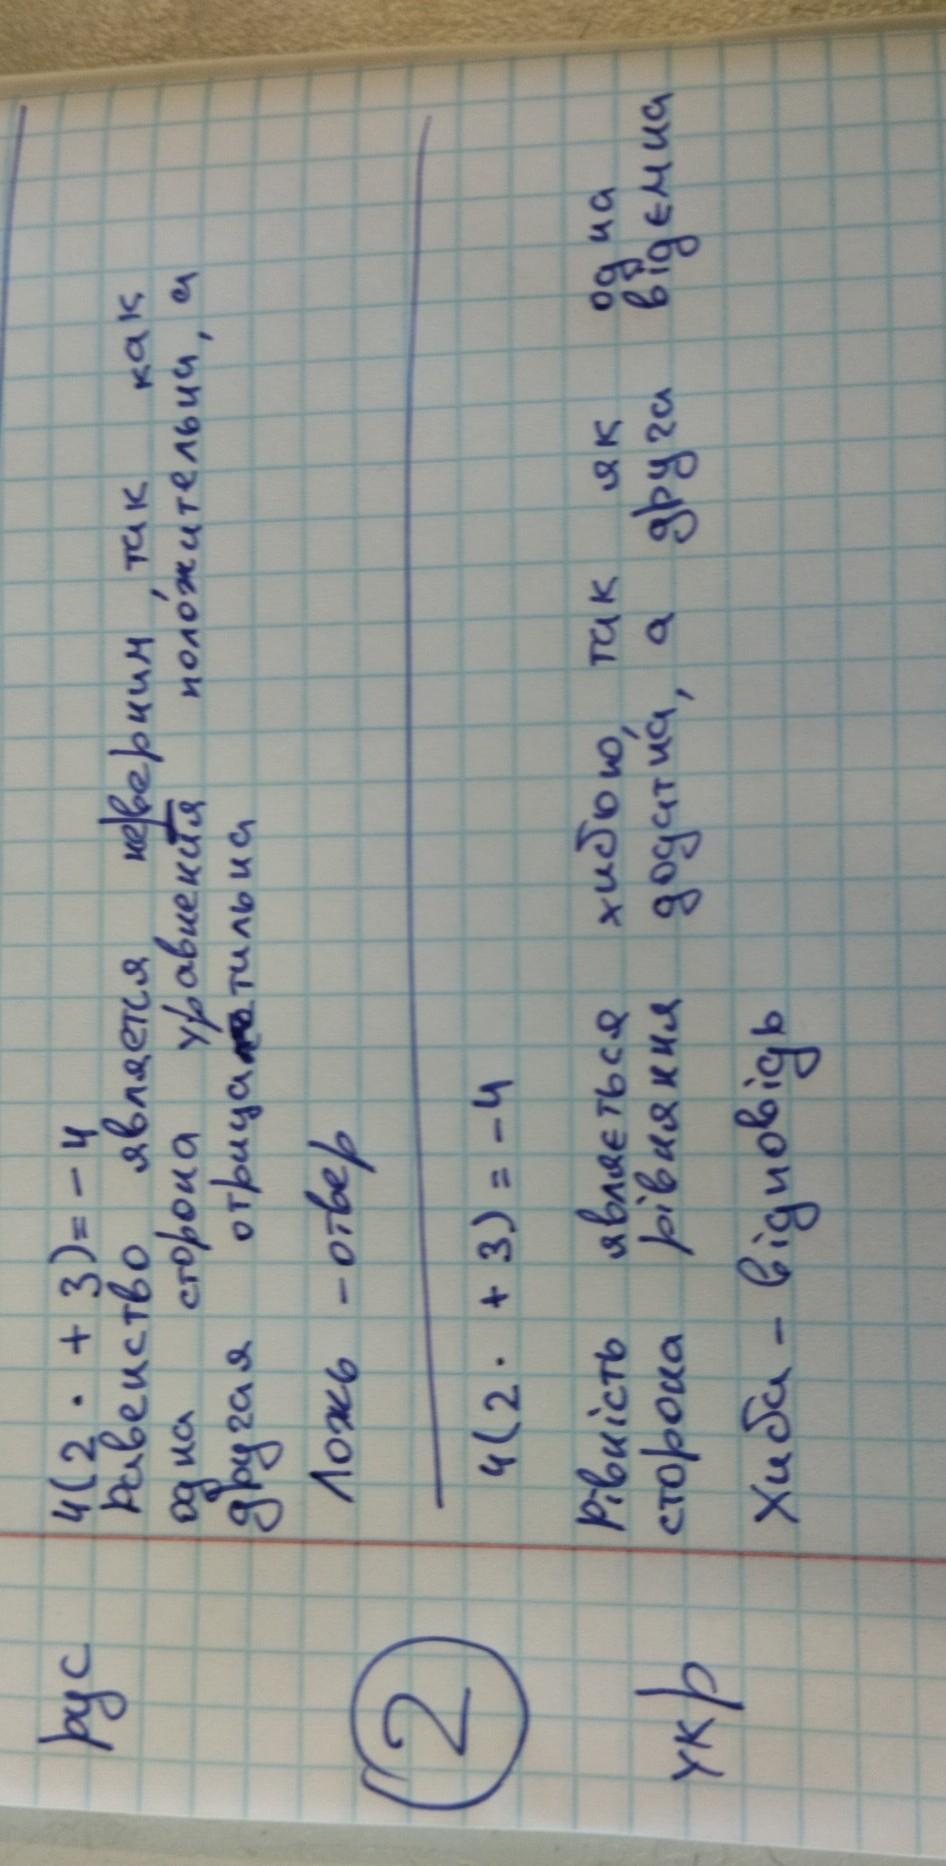 рус
4(2 · + 3) = -4
Равенство является неверним, так как
одна сторона уравнения положительна, а
другая отрицательна
Ложь - отвер
2
4(2 · + 3) = -4
укр
Рівність являється хибою, так як одна
сторона рівняння додатна, а друга відємна
Хиба - відповідь